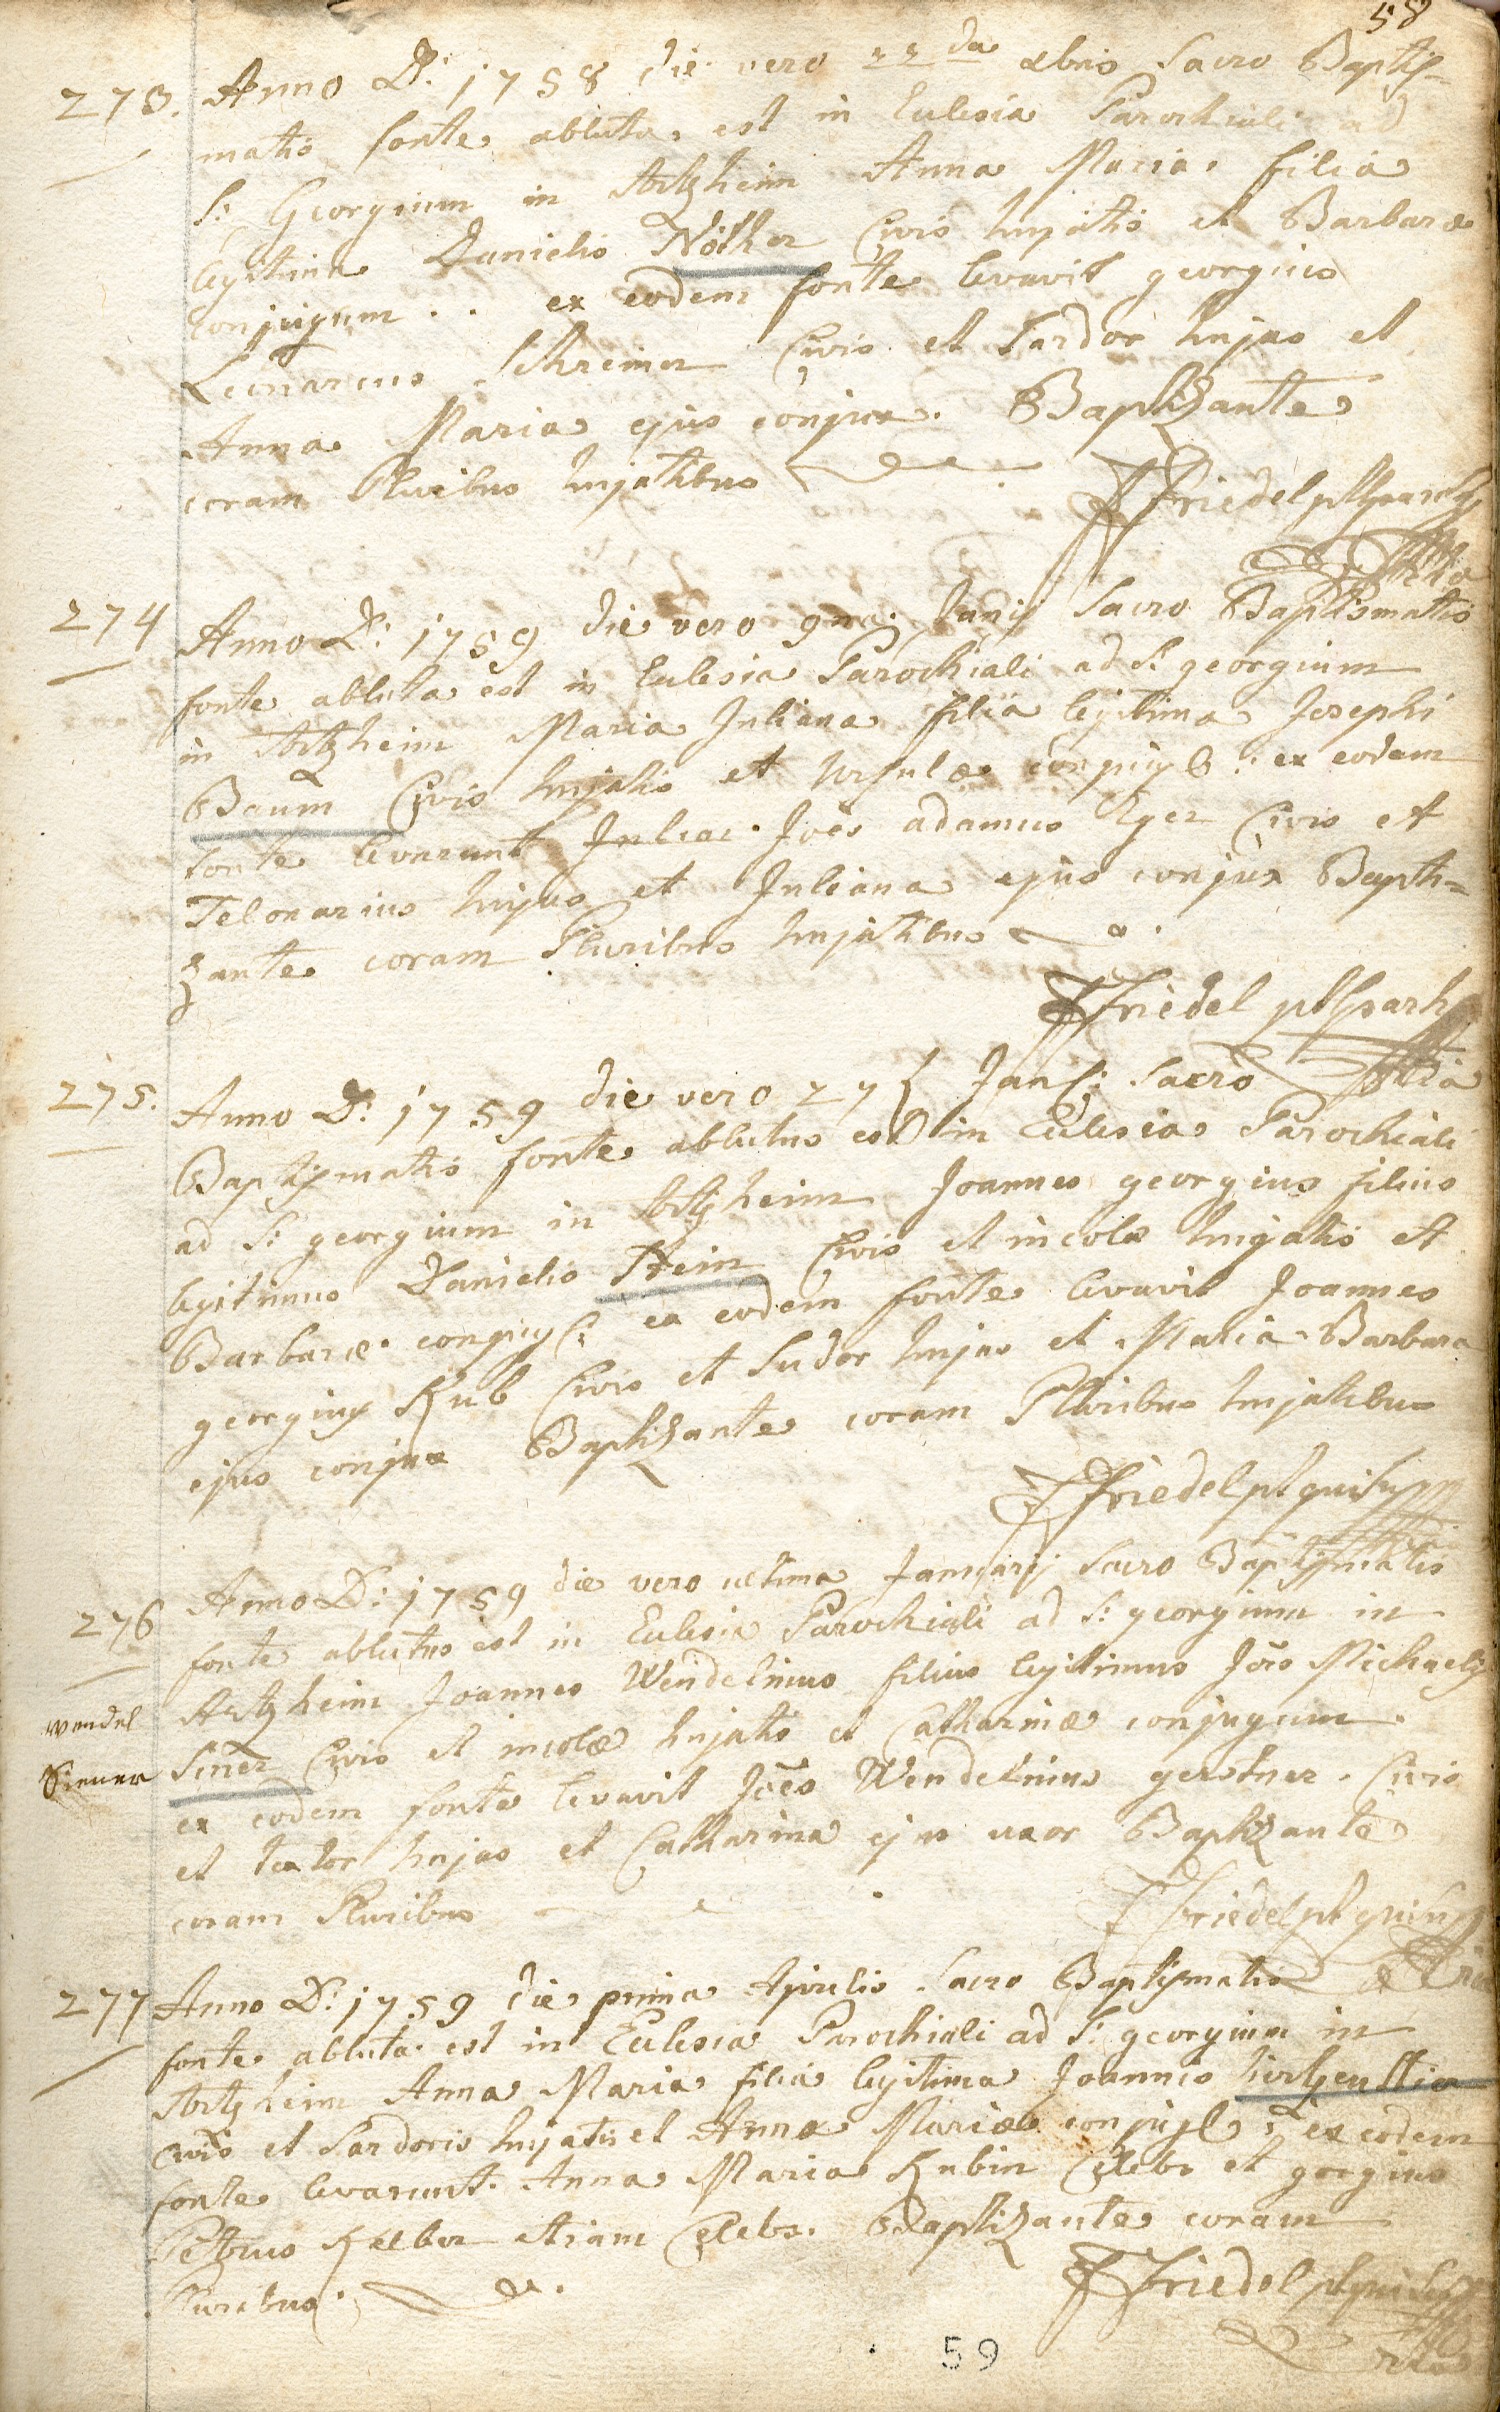 58
273. Anno D: 1758 die vero 22da xbris Sacro Baptis-
matis fonte abluta est in Ecclesia Parochiali ad
S: Georgium in Artzheim Anna Maria filia
legitima Danielis Nöther Civis hujatis et Barbaræ
conjugum . . ex eodem fonte levavit georgius
Leonardus Schreiner Civis et Sardor hujas et
Anna Maria ejus conjux. Baptizante
coram Pluribus hujatibus
Friedel
274 Anno D: 1759 die vero 9na Janij Sacro Baptismatis
fonte abluta est in Ecclesia Parochiali ad S: georgium
in Artzheim Maria Juliana filia legitima Josephi
Baum Civis hujatis et Ursulæ conjugb: ex eodem
fonte levarunt Joes adamus Eger Civis et
Telonarius hujus et Juliana ejus conjux Bapti=
zante coram Pluribus hujatibus
Friedel
275. Anno D: 1759 die vero 27 Jan: Sacro
Baptismatis fonte ablutus est in Ecclesia Parochiali
ad S: georgium in Artzheim Joannes georgius filius
legitimus Danielis Stein Civis et incolæ hujatis et
Barbaræ conjug: ex eodem fonte levavit Joannes
georgius Kub Civis et Sudor hujas et Maria Barbara
ejus conjux Baptizante coram Pluribus hujatibus
Friedel
276 Anno D: 1759 die vero ultima Januarij Sacro Baptismatis
fonte ablutus est in Ecclesia Parochiali ad S: georgium in
Artzheim Joannes Wendelinus filius legitimus Jois Michaelis
wendel
Siener
Siner Civis et incolæ hujatis et Catharinæ conjugum.
ex eodem fonte levavit Joes Wendelinus gerstner. Civis
et textor hujas et Catharina ejus uxor Baptizante
coram Pluribus
Friedel
277 Anno D: 1759 die prima Aprilis Sacro Baptismatis
fonte abluta est in Ecclesia Parochiali ad S: georgium in
Artzheim Anna Maria filia legitima Joannis
Civis et Sardoris hujatis et Annæ Mariæ conjug: ex eodem
fonte levarunt Anna Maria Kubin Cælebs et gorgius
Petrus Kelber etiam Cælebs. Baptizante coram
Pluribus
Friedel
59